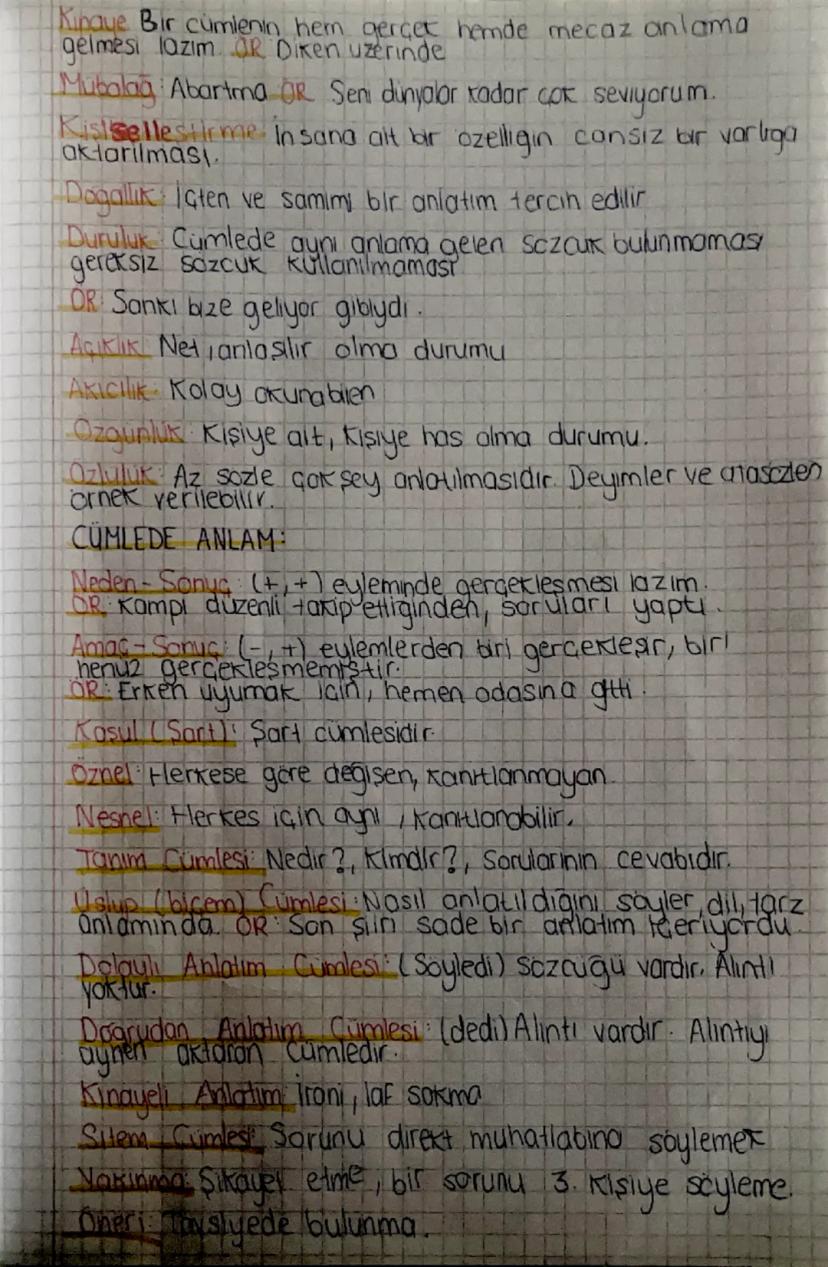 Kinaye Bir cümlenin hem gerçek hemde mecaz anlama
gelmesi lazım. ÖR Diken üzerinde
Mübalağ: Abartma ÖR Seni dünyalar kadar çok seviyorum.
Kişiselleştirme: İnsana ait bir özelliğin cansız bir varlığa
aktarılması.
Doğallık: İçten ve samimi bir anlatım tercih edilir
Duruluk: Cümlede aynı anlama gelen sözcük bulunmaması
gereksiz sözcük kullanılmaması
ÖR: Sanki bize geliyor gibiydi.
Açıklık: Net, anlaşılır olma durumu
Akıcılık: Kolay okunabilen
Özgünlük: Kişiye ait, kişiye has olma durumu.
Özlülük: Az sözle çok şey anlatılmasıdır. Deyimler ve atasözleri
örnek verilebilir.
CÜMLEDE ANLAM:
Neden-Sonuç: (+,+) eyleminde gerçekleşmesi lazım.
ÖR: Kampı düzenli takip ettiğinden, soruları yaptı.
Amaç-Sonuç: (-,+) eylemlerden biri gerçekleşir, biri
henüz gerçekleşmemiştir.
ÖR: Erken uyumak için, hemen odasına gitti.
Koşul (Şart): Şart cümlesidir.
Öznel: Herkese göre değişen, kanıtlanmayan.
Nesnel: Herkes için aynı, kanıtlanabilir.
Tanım Cümlesi: Nedir?, Kimdir?, Sorularının cevabıdır.
Üslup (biçem) Cümlesi: Nasıl anlatıldığını söyler, dil, tarz
anlamında. ÖR: Son şiiri sade bir anlatım içeriyordu.
Dolaylı Anlatım Cümlesi: (Söyledi) sözcüğü vardır. Alıntı
yoktur.
Doğrudan Anlatım Cümlesi: (dedi) Alıntı vardır. Alıntıyı
aynen aktaran cümledir.
Kinayeli Anlatım: İroni, laf sokma
Sitem Cümlesi: Sorunu direkt muhatabına söylemek
Yakınma: Şikayet etme, bir sorunu 3. kişiye söyleme.
Öneri: Tavsiyede bulunma.